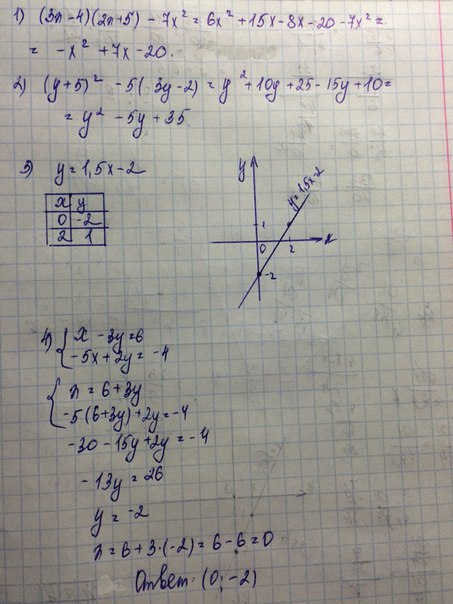 1) (3x-4)(2x+5) - 7x² = 6x² + 15x - 8x - 20 - 7x² =
= -x² + 7x - 20.
2) (y+5)² - 5( 3y-2) = y² + 10y + 25 - 15y + 10 =
= y² - 5y + 35.
3) y = 1,5x - 2
x y
0 -2
2 1
y
y = 1,5x-2
1
0 2 x
-2
4) { x - 3y = 6
-5x + 2y = -4
{ x = 6 + 3y
-5(6+3y) + 2y = -4
-30 - 15y + 2y = -4
-13y = 26
y = -2
x = 6 + 3·(-2) = 6 - 6 = 0
Ответ: (0; -2)